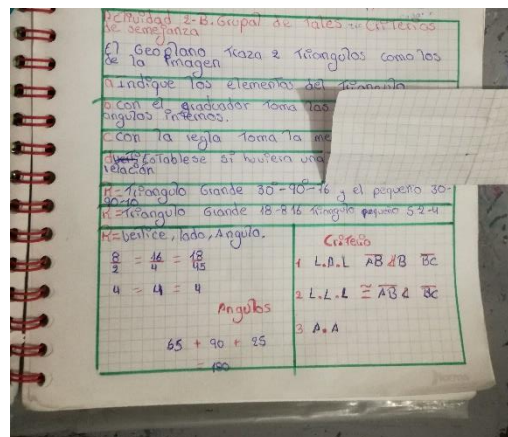 Actividad 2-B. Grupal de Tales ... Criterios
de semejanza
El Geoplano Traza 2 Triangulos como los
de la Imagen
a Indique los elementos del Triangulo
b Con el graduador Toma las
angulos internos.
c Con la regla Toma la me
establese si huviera una
relación
R= Triangulo Grande 30°-90°-16 y el pequeño 30-
90-10
R= Triangulo Grande 18-8 16 Triangulo pequeño 5-2-4
R= Vertice, lado, Angulo.
8/2 = 16/4 = 18/45
4 = 4 = 4
Angulos
65 + 90 + 25
= 180
Criterio
1 L.A.L AB ∡B BC
2 L.L.L ≅ AB ∡ BC
3 A.A